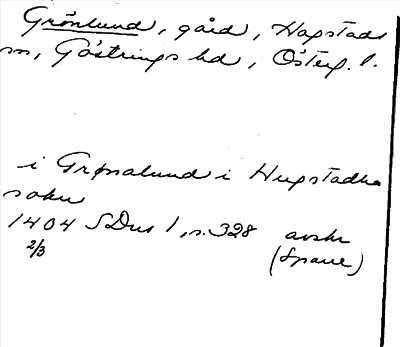 Grönlund, gård, Hagstads
sn, Göstrings hd, Österg. l.
i Grønalund i Hugstadha
sokn
1404 SDns 1, s. 328 avskr
2/3 (Spane)